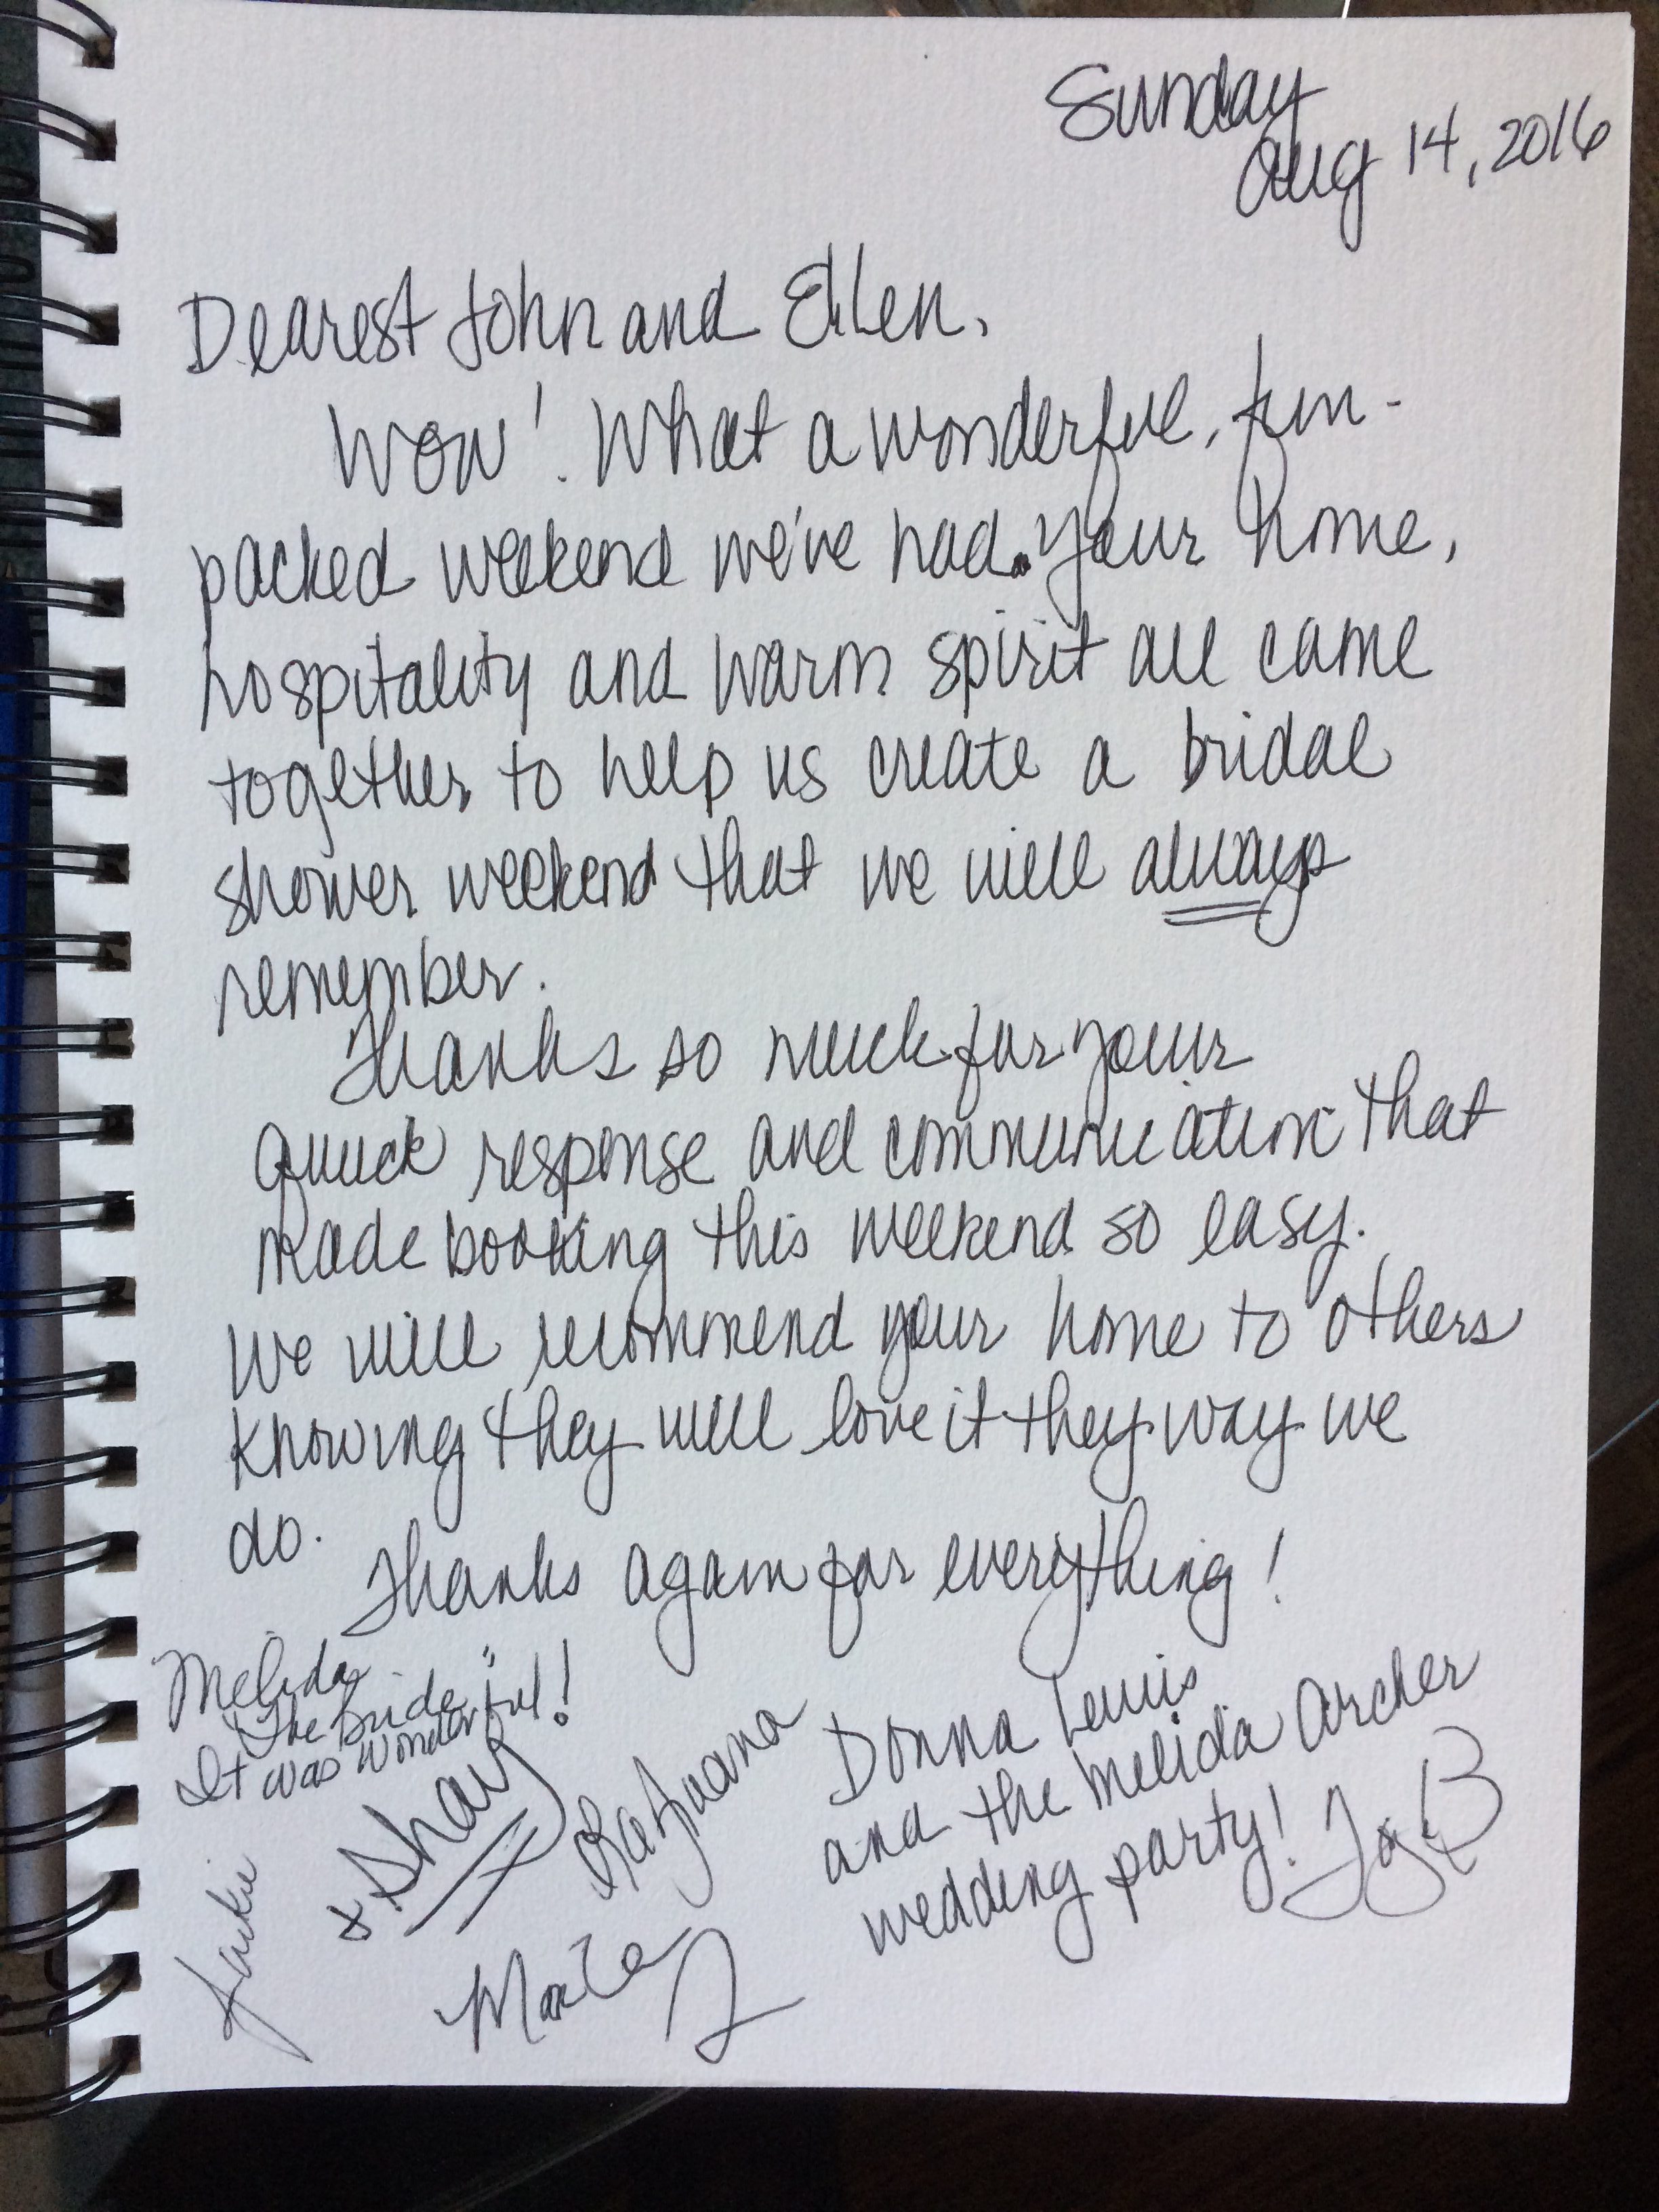 Sunday
Aug 14, 2016
Dearest John and Ellen,
Wow! What a wonderful, fun-
packed weekend we've had. Your home,
hospitality and warm spirit all came
together to help us create a bridal
shower weekend that we will always
remember.
Thanks so much for your
quick response and communication that
made booking this weekend so easy.
We will recommend your home to others
knowing they will love it they way we
do.
Thanks again for everything!
Melida
"The Bride"
It was wonderful!
Shay
Donna Lewis
and the Melida Archer
wedding party!
Jackie